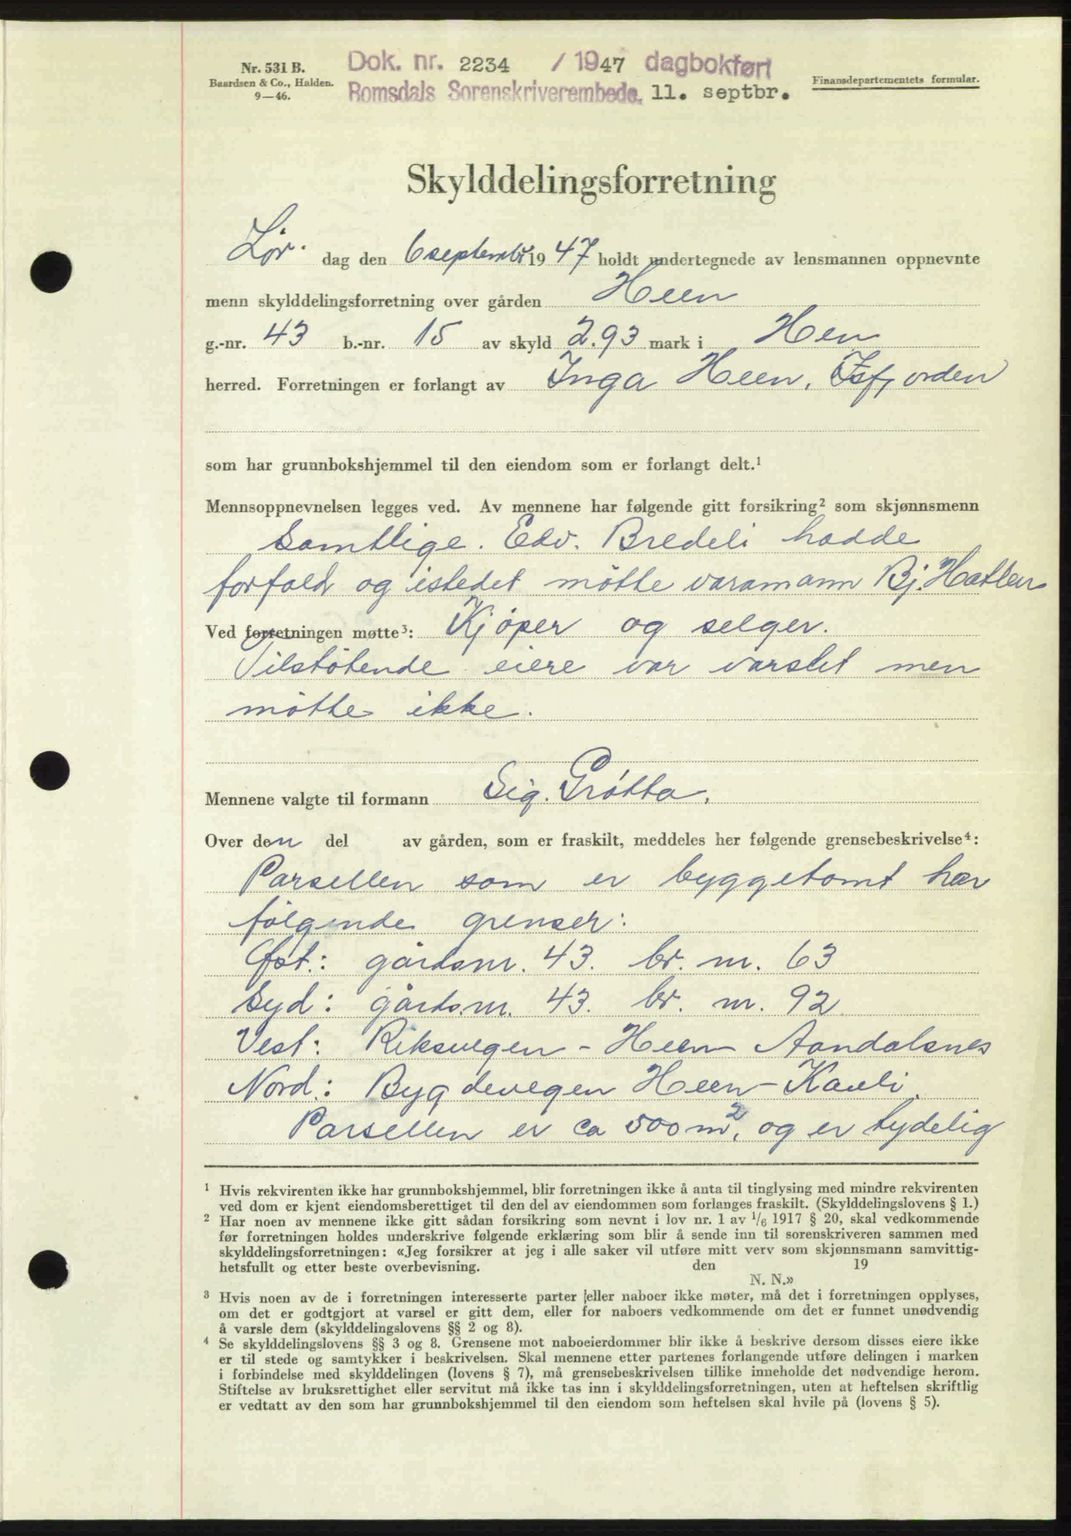 Nr. 531 B.
Baardsen & Co., Halden.
9—46.
Dok. nr. 2234 / 1947 dagbokført
Romsdals Sorenskriverembede, 11. septbr.
Finansdepartementets formular.
Skylddelingsforretning
Lør. dag den 6 september 1947 holdt undertegnede av lensmannen oppnevnte
menn skylddelingsforretning over gården Heen
g.-nr. 43 b.-nr. 15 av skyld 2.93 mark i Hen
herred. Forretningen er forlangt av Inga Heen, Isfjorden
som har grunnbokshjemmel til den eiendom som er forlangt delt.¹
Mennsoppnevnelsen legges ved. Av mennene har følgende gitt forsikring² som skjønnsmenn
Samtlige. Edv. Bredeli hadde
forfald og istedet møtte varamann Bj. Hatlen
Ved forretningen møtte³: Kjøper og selger.
Tilstøtende eiere var varslet men
møtte ikke.
Mennene valgte til formann Sig. Grøtta.
Over den del av gården, som er fraskilt, meddeles her følgende grensebeskrivelse⁴:
Parsellen som er byggetomt har
følgende grenser:
Øst: gårdsnr. 43. br. nr. 63
Syd: gårdsnr. 43. br. nr. 92
Vest: Riksvegen - Heen - Aandalsnes
Nord: Bygdevegen Heen - Kavli
Parsellen er ca 500 m², og er tydelig
¹ Hvis rekvirenten ikke har grunnbokshjemmel, blir forretningen ikke å anta til tinglysing med mindre rekvirenten
ved dom er kjent eiendomsberettiget til den del av eiendommen som forlanges fraskilt. (Skylddelingslovens § 1.)
² Har noen av mennene ikke gitt sådan forsikring som nevnt i lov nr. 1 av 1/6 1917 § 20, skal vedkommende
før forretningen holdes underskrive følgende erklæring som blir å sende inn til sorenskriveren sammen med
skylddelingsforretningen: «Jeg forsikrer at jeg i alle saker vil utføre mitt verv som skjønnsmann samvittig-
hetsfullt og etter beste overbevisning. den 19
N. N.»
³ Hvis noen av de i forretningen interesserte parter eller naboer ikke møter, må det i forretningen opplyses,
om det er godtgjort at varsel er gitt dem, eller for naboers vedkommende om det er funnet unødvendig
å varsle dem (skylddelingslovens §§ 2 og 8).
⁴ Se skylddelingslovens §§ 3 og 8. Grensene mot naboeierdommer blir ikke å beskrive dersom disses eiere ikke
er til stede og samtykker i beskrivelsen. Skal mennene etter partenes forlangende utføre delingen i marken
i forbindelse med skylddelingen (lovens § 7), må grensebeskrivelsen tillike inneholde det nødvendige herom.
Stiftelse av bruksrettighet eller servitut må ikke tas inn i skylddelingsforretningen, uten at heftelsen skriftlig
er vedtatt av den som har grunnbokshjemmel til den eiendom som heftelsen skal hvile på (lovens § 5).